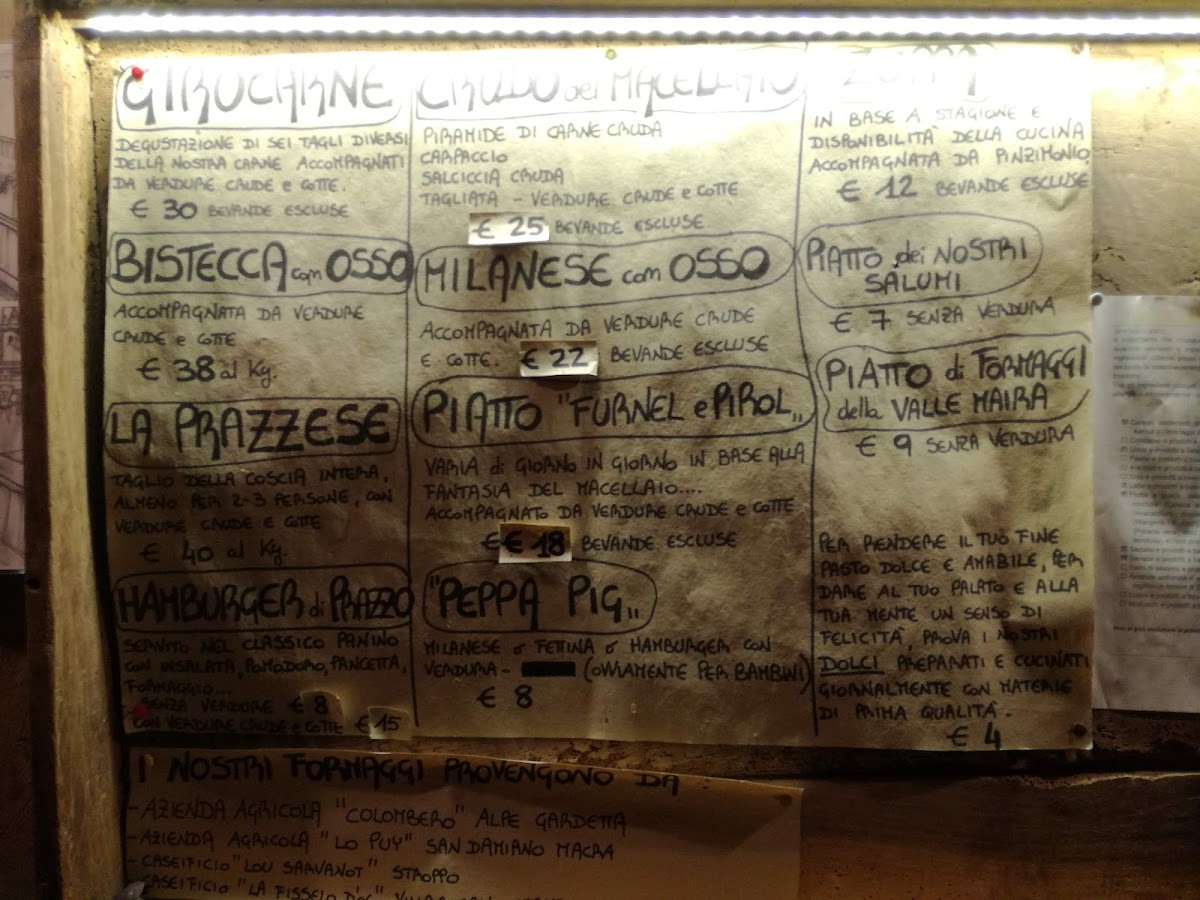 GIROCARNE
DEGUSTAZIONE DI SEI TAGLI DIVERSI
DELLA NOSTRA CARNE ACCOMPAGNATI
DA VERDURE CRUDE e COTTE.
€ 30 BEVANDE ESCLUSE
BISTECCA con OSSO
ACCOMPAGNATA DA VERDURE
CRUDE e COTTE
€ 38 al Kg.
LA PRAZZESE
TAGLIO DELLA COSCIA INTERA,
ALMENO PER 2-3 PERSONE, CON
VERDURE CRUDE E COTTE
€ 40 al Kg.
HAMBURGER di PRAZZO
SERVITO NEL CLASSICO PANINO
CON INSALATA, POMODORO, PANCETTA,
FORMAGGIO...
SENZA VERDURE € 8
CON VERDURE CRUDE e COTTE € 15
CRUDO del MACELLAIO
PIRAMIDE DI CARNE CRUDA
CARPACCIO
SALCICCIA CRUDA
TAGLIATA - VERDURE CRUDE e COTTE
€ 25 BEVANDE ESCLUSE
MILANESE con OSSO
ACCOMPAGNATA DA VERDURE CRUDE
E COTTE. € 22 BEVANDE ESCLUSE
PIATTO "FURNEL e PIROL"
VARIA di GIORNO IN GIORNO IN BASE ALLA
FANTASIA DEL MACELLAIO....
ACCOMPAGNATO DA VERDURE CRUDE e COTTE
€ € 18 BEVANDE ESCLUSE
"PEPPA PIG"
MILANESE o FETTINA o HAMBURGER CON
VERDURA - (OVVIAMENTE PER BAMBINI)
€ 8
IN BASE A STAGIONE E
DISPONIBILITÀ DELLA CUCINA
ACCOMPAGNATA DA PINZIMONIO
€ 12 BEVANDE ESCLUSE
PIATTO dei NOSTRI
SALUMI
€ 7 SENZA VERDURA
PIATTO di FORMAGGI
della VALLE MAIRA
€ 9 SENZA VERDURA
PER RENDERE IL TUO FINE
PASTO DOLCE E AMABILE, PER
DARE AL TUO PALATO E ALLA
TUA MENTE UN SENSO DI
FELICITÀ, PROVA I NOSTRI
DOLCI PREPARATI E CUCINATI
GIORNALMENTE CON MATERIE
DI PRIMA QUALITÀ.
€ 4
I NOSTRI FORMAGGI PROVENGONO DA
- AZIENDA AGRICOLA "COLOMBERO" ALPE GARDETTA
- AZIENDA AGRICOLA "LO PUY" SAN DAMIANO MACRA
- CASEIFICIO "LOU SARVANOT" STROPPO
- CASEIFICIO "LA